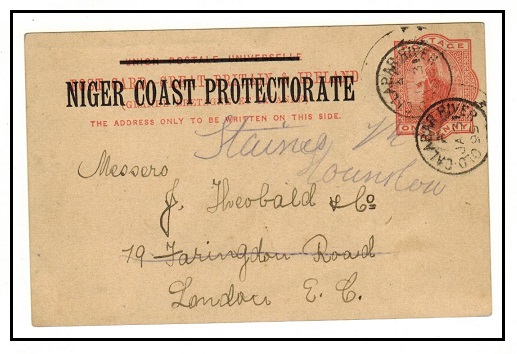 UNION POSTALE UNIVERSELLE
POST CARD-GREAT BRITAIN & IRELAND
NIGER COAST PROTECTORATE
THE ADDRESS ONLY TO BE WRITTEN ON THIS SIDE.
POSTAGE
ONE PENNY
CALABAR RIVER
OLD CALABAR RIVER
JA
95
Staines
Hounslow
Messers
J. Theobald & Co
79 Faringdon Road
London E. C.